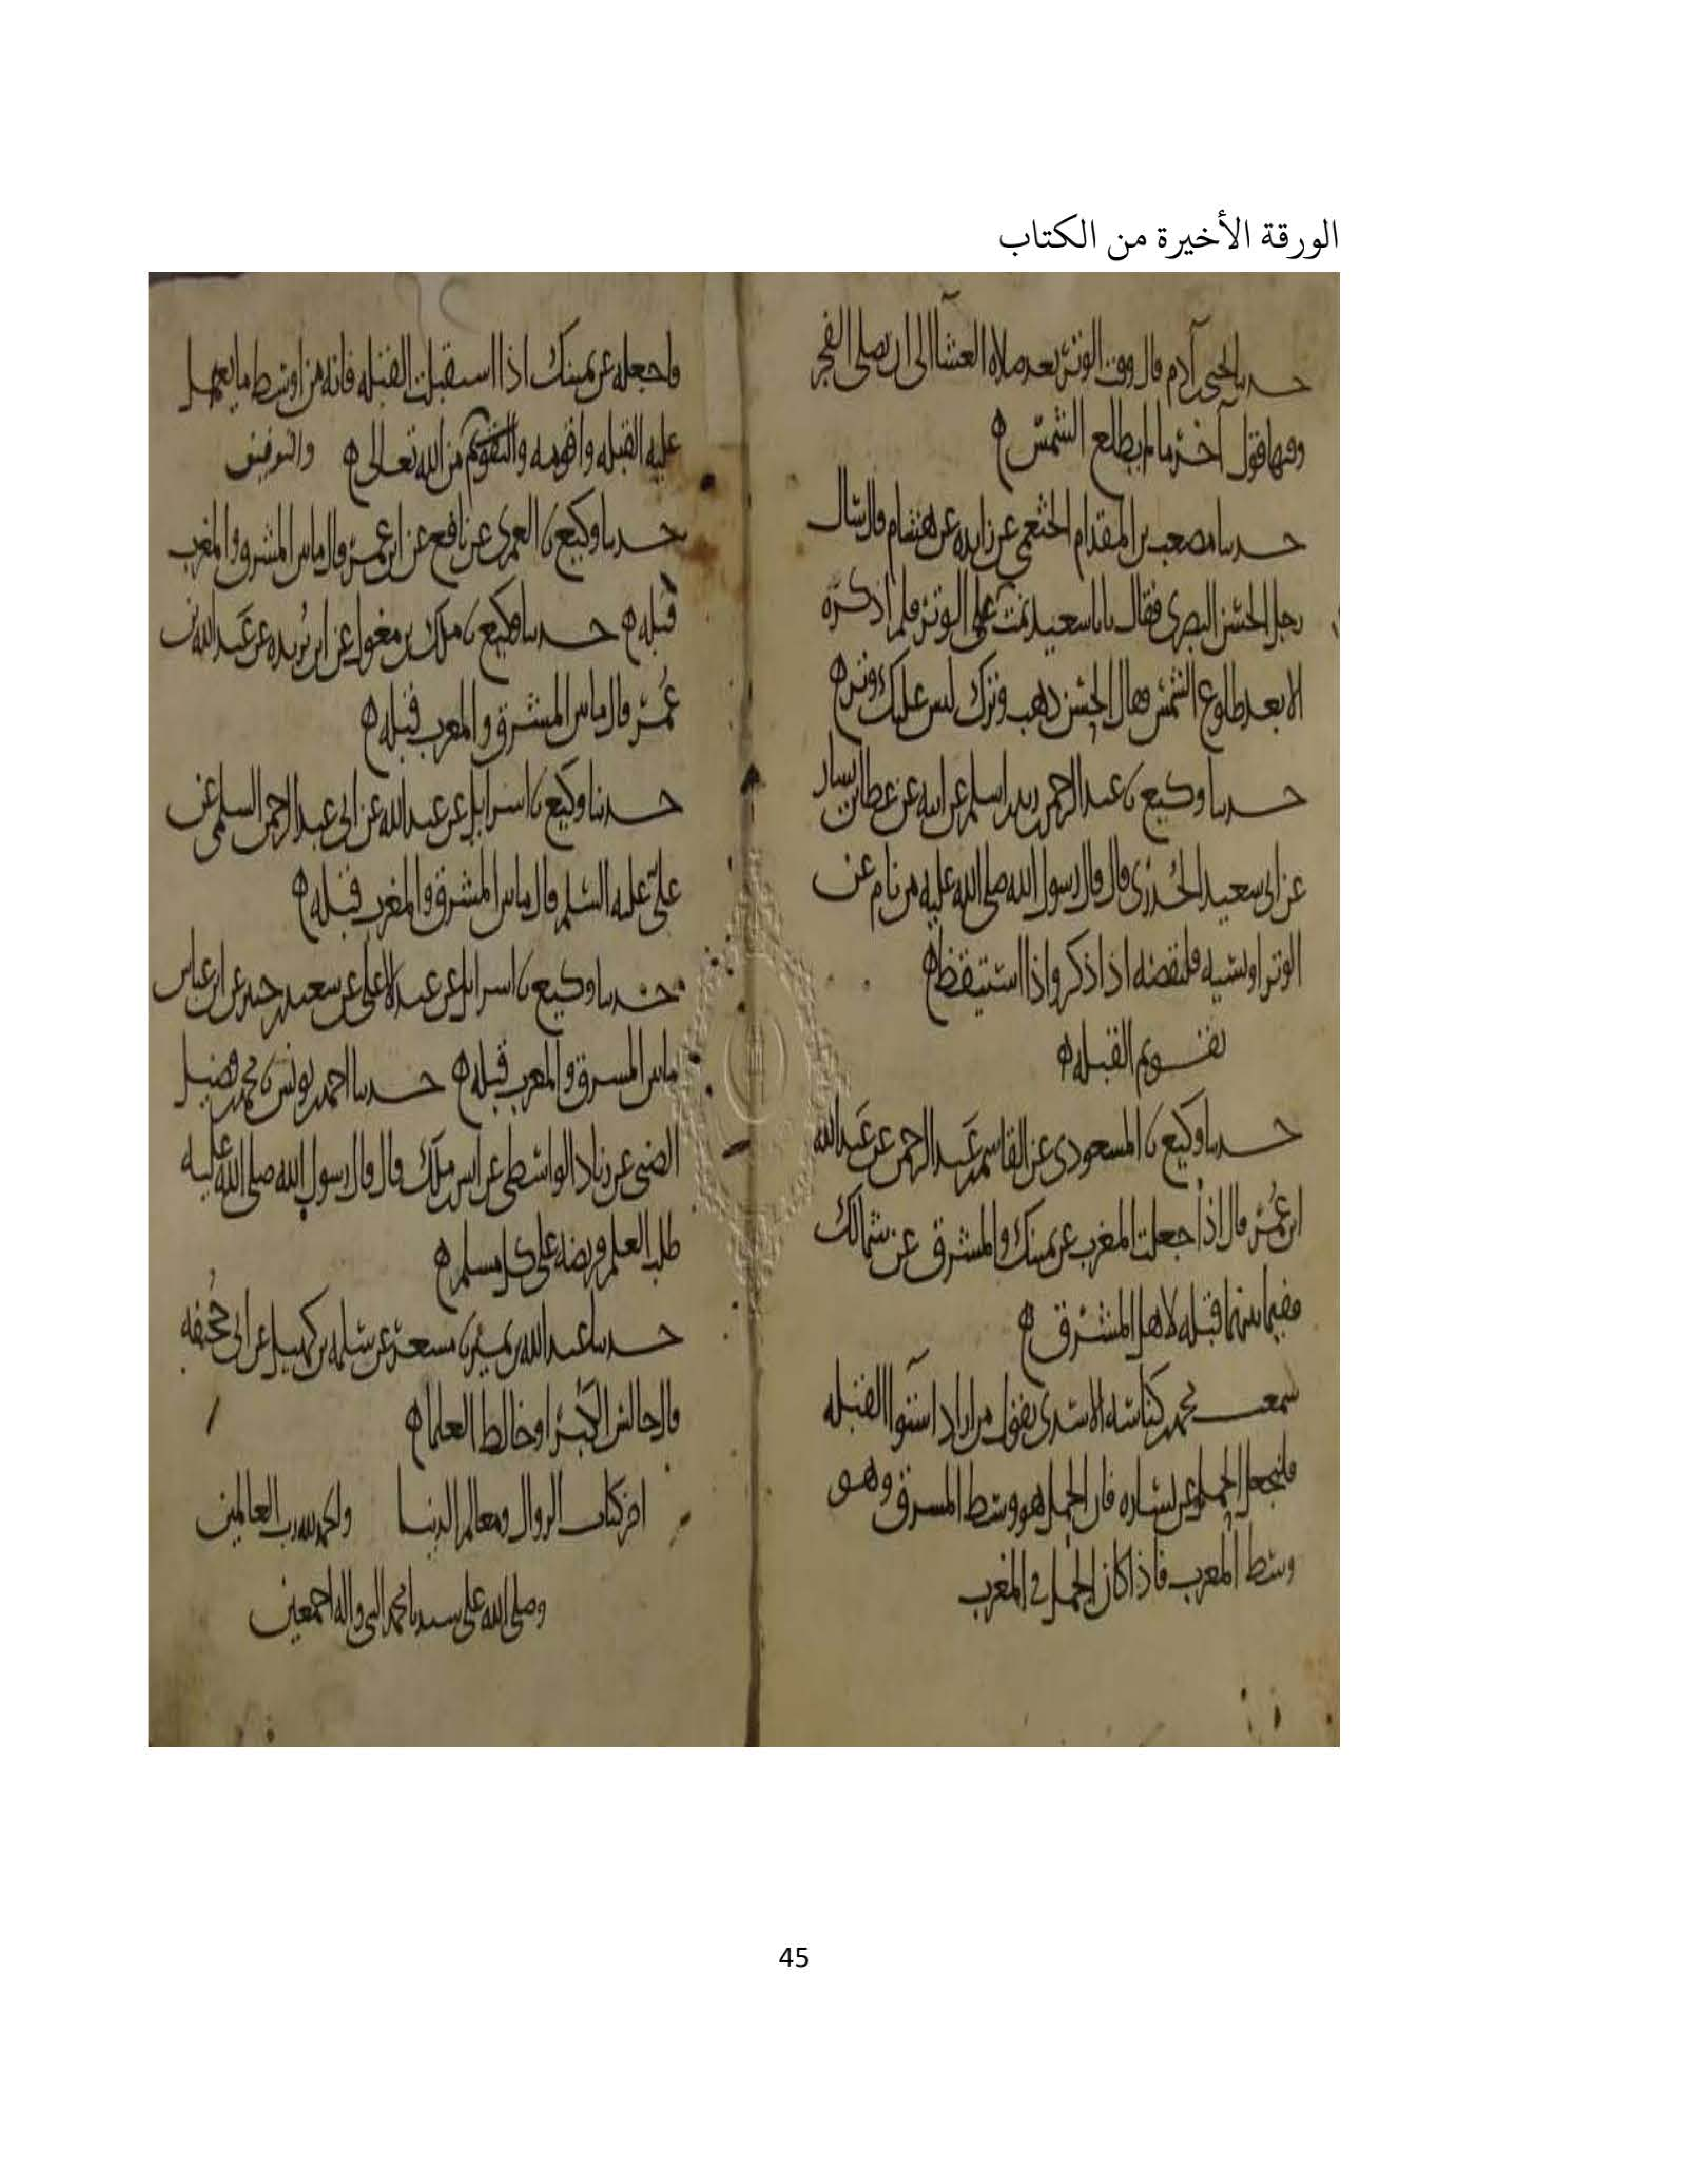 الورقة الأخيرة من الكتاب
حدثنا يحيى آدم قال وقت الوتر بعد صلاة العشآ الى ان يصلى الفجر
وفيها قول آخر ما لم يطلع الشمس
حدثنا مصعب بن المقدام الخثعمي عن زايده عن هشام قال سال
رجل الحسن البصرى فقال يا با سعيد نمت على الوتر فلم اذكره
الا بعد طلوع الشمس فقال الحسن ذهب وترك ليس عليك وتر
حدثنا وكيع نا عبد الرحمن زيد اسلم عن ابيه عن عطا بن يسار
عن ابى سعيد الخدرى قال قال رسول الله صلى الله عليه من نام عن
الوتر او نسيه فليقضه اذا ذكر واذا استيقظ
تقويم القبله
حدثنا وكيع نا المسعودى عن القاسم عبد الرحمن عن عبد الله
ابن عمر قال اذا جعلت المغرب عن يمينك والمشرق عن شمالك
ففيما بينهما قبله لاهل المشرق
سمعت محمد كناسه الاسدى يقول من اراد استوا القبله
فليجعل الجمل عن يساره فان الجمل هو وسط المشرق وهو
وسط المغرب فاذا كان الجمل في المغرب
فاجعله عن يمينك اذا استقبلت القبله فانه من اوسط ما يعمل
عليه القبله واقومه والتقويم من الله تعالى والتوفيق
حدثنا وكيع نا العمرى عن نافع عن ابن عمر قال ما بين المشرق والمغرب
قبله حدثنا وكيع نا ملك بن مغول عن ابن بريده عن عبد الله بن
عمر قال ما بين المشرق والمغرب قبله
حدثنا وكيع نا اسرايل عن عبد الله عن ابى عبد الرحمن السلمى عن
على عليه السلم قال ما بين المشرق والمغرب قبله
حدثنا وكيع نا اسرايل عن عبد الاعلى عن سعيد جبير عن ابن عباس
ما بين المشرق والمغرب قبله حدثنا احمد يونس نا محمد فضيل
الضبى عن زياد الواسطى عن انس ملك قال قال رسول الله صلى الله عليه
طلب العلم فريضه على كل مسلم
حدثنا عبد الله بن نمير نا مسعر عن سلمه بن كهيل عن ابى جحيفه
قال جالس الكبرا وخالط العلما
اخر كتاب الزوال ومعالم الدنيا والحمد لله رب العالمين
وصلى الله على سيدنا محمد النبى واله اجمعين
45